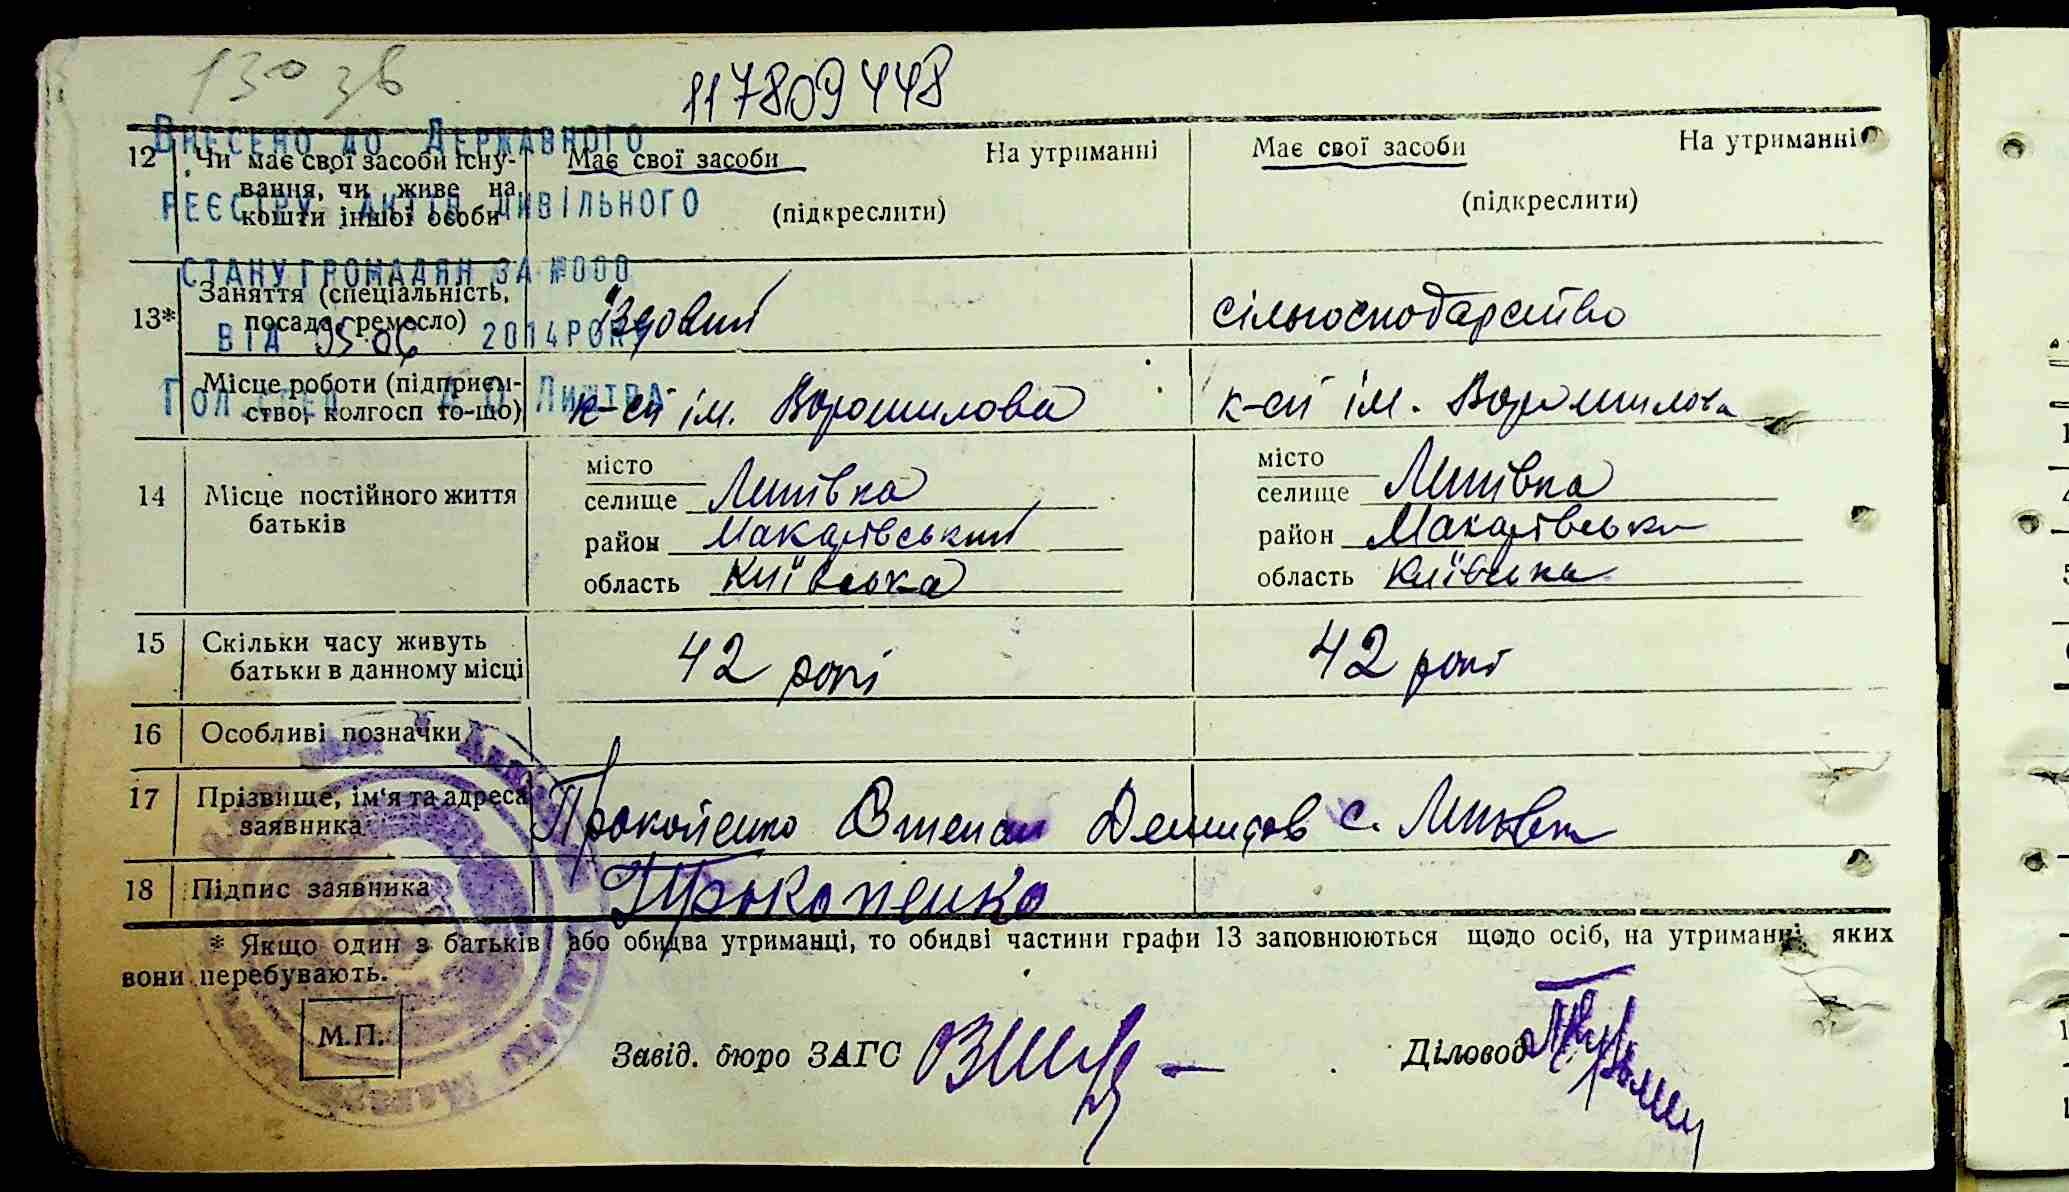 130 зв
117809448
ВНЕСЕНО ДО ДЕРЖАВНОГО
РЕЄСТРУ АКТІВ ЦИВІЛЬНОГО
СТАНУ ГРОМАДЯН ЗА №000
ВІД 05 06 2014 РОКУ
12 Чи має свої засоби існу-
вання, чи живе на
кошти іншої особи
Має свої засоби На утриманні
(підкреслити)
Має свої засоби На утриманні
(підкреслити)
13* Заняття (спеціальність,
посада, ремесло)
їздовий
сільгосподарство
Місце роботи (підприєм-
ство, колгосп то-що)
к-сп ім. Ворошилова
к-сп ім. Ворошилова
14 Місце постійного життя
батьків
місто
селище Липівка
район Макарівський
область Київська
місто
селище Липівка
район Макарівськи
область Київська
15 Скільки часу живуть
батьки в данному місці
42 роки
42 роки
16 Особливі позначки
17 Прізвище, ім'я та адреса
заявника
Прокопенко Степан Демидов с. Липівка
18 Підпис заявника
Прокопенко
* Якщо один з батьків або обидва утриманці, то обидві частини графи 13 заповнюються щодо осіб, на утриманні яких
вони перебувають.
М.П.
Завід. бюро ЗАГС
Діловод